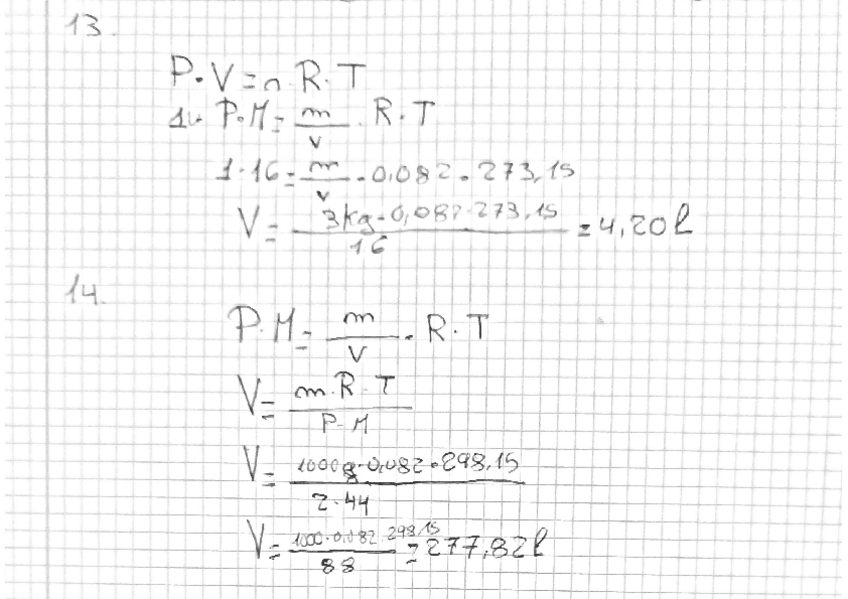 13.
P·V=n·R·T
1· P·M= m/V · R·T
1·16= m/V · 0,082 · 273,15
V= 3kg·0,082·273,15/16 =4,20l
14.
P·M= m/V · R·T
V= m·R·T/P·M
V= 1000g·0,082·298,15/2·44
V= 1000·0,082·298,15/88 =277,82l